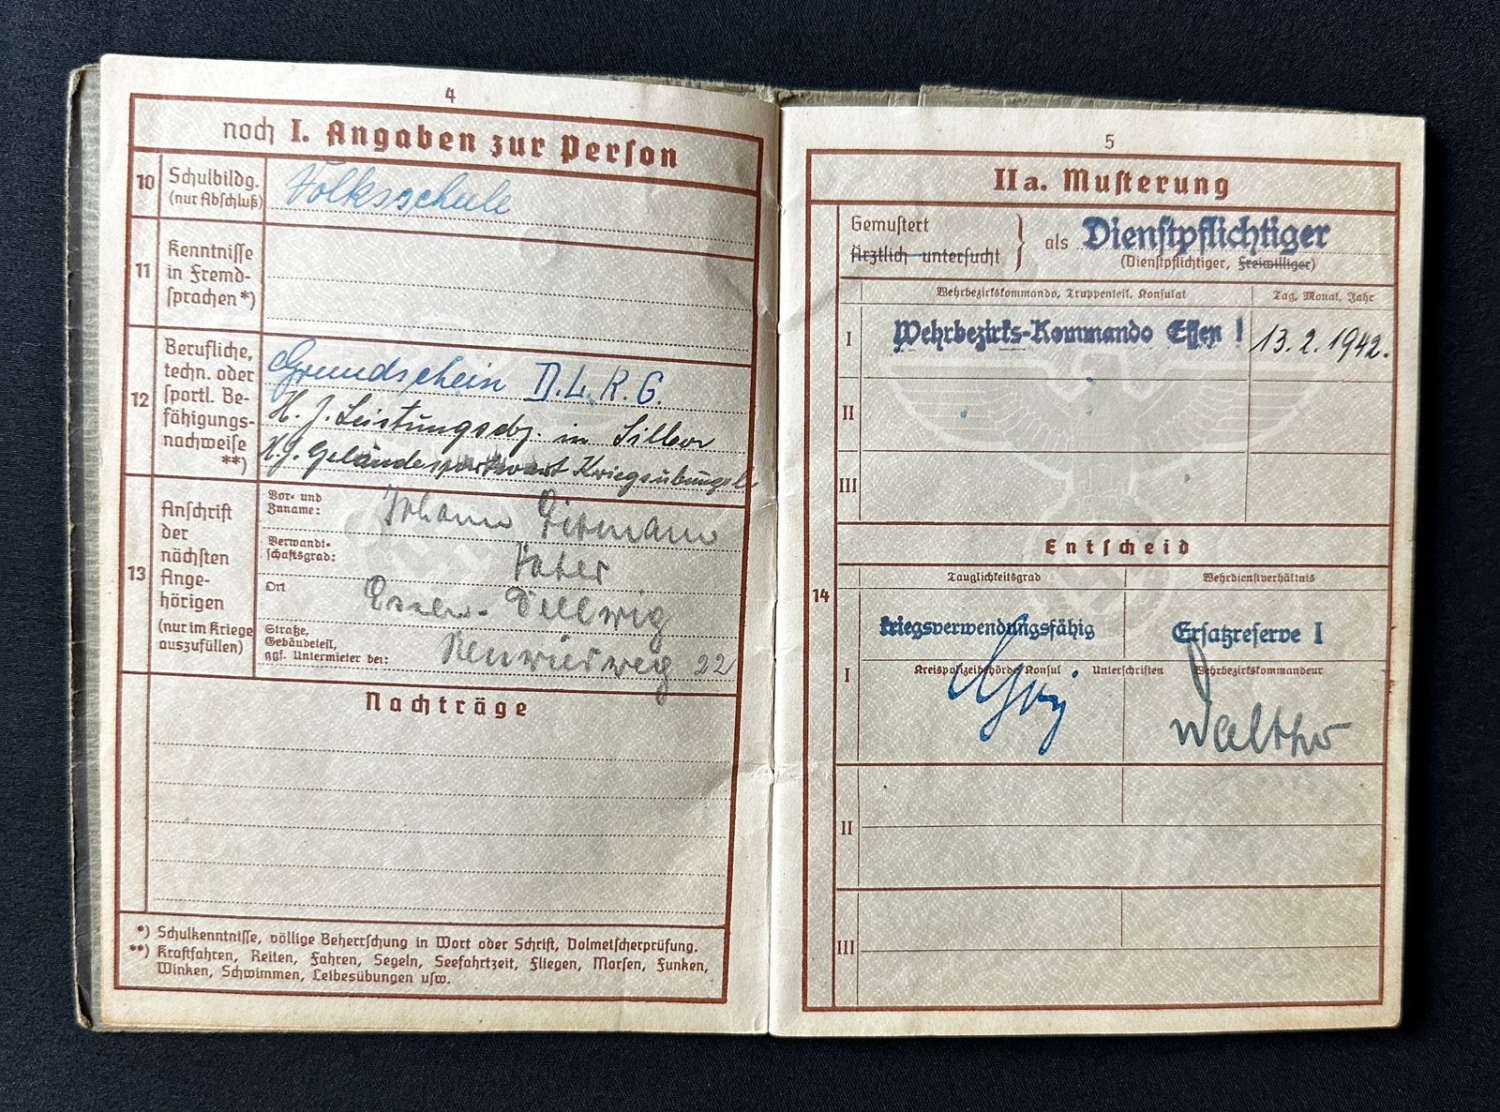 4
noch I. Angaben zur Person
10 Schulbildg. (nur Abschluß)
Volksschule
11 Kenntnisse in Fremd-sprachen*)
12 Berufliche, techn. oder sportl. Be-fähigungs-nachweise **)
Grundschein D.L.R.G.
H.J. Leistungsabz. in Silber
H.J. Geländesportwart Kriegsübungsl
13 Anschrift der nächsten Ange-hörigen (nur im Kriege auszufüllen)
Vor- und Zuname: Johann
Verwandt-schaftsgrad: Vater
Ort Essen-Dellwig
Straße, Gebäudeteil, ggf. Untermieter bei: 22
Nachträge
*) Schulkenntnisse, völlige Beherrschung in Wort oder Schrift, Dolmetscherprüfung.
**) Kraftfahren, Reiten, Fahren, Segeln, Seefahrtzeit, Fliegen, Morsen, Funken,
Winken, Schwimmen, Leibesübungen usw.
5
IIa. Musterung
Gemustert
Ärztlich untersucht
als Dienstpflichtiger
(Dienstpflichtiger, Freiwilliger)
Wehrbezirkskommando, Truppenteil, Konsulat
Tag, Monat, Jahr
I Wehrbezirks-Kommando Essen I 13.2.1942.
II
III
Entscheid
14
Tauglichkeitsgrad Wehrdienstverhältnis
kriegsverwendungsfähig Ersatzreserve I
I Kreispolizeibehörde/Konsul Unterschriften Wehrbezirkskommandeur
II
III